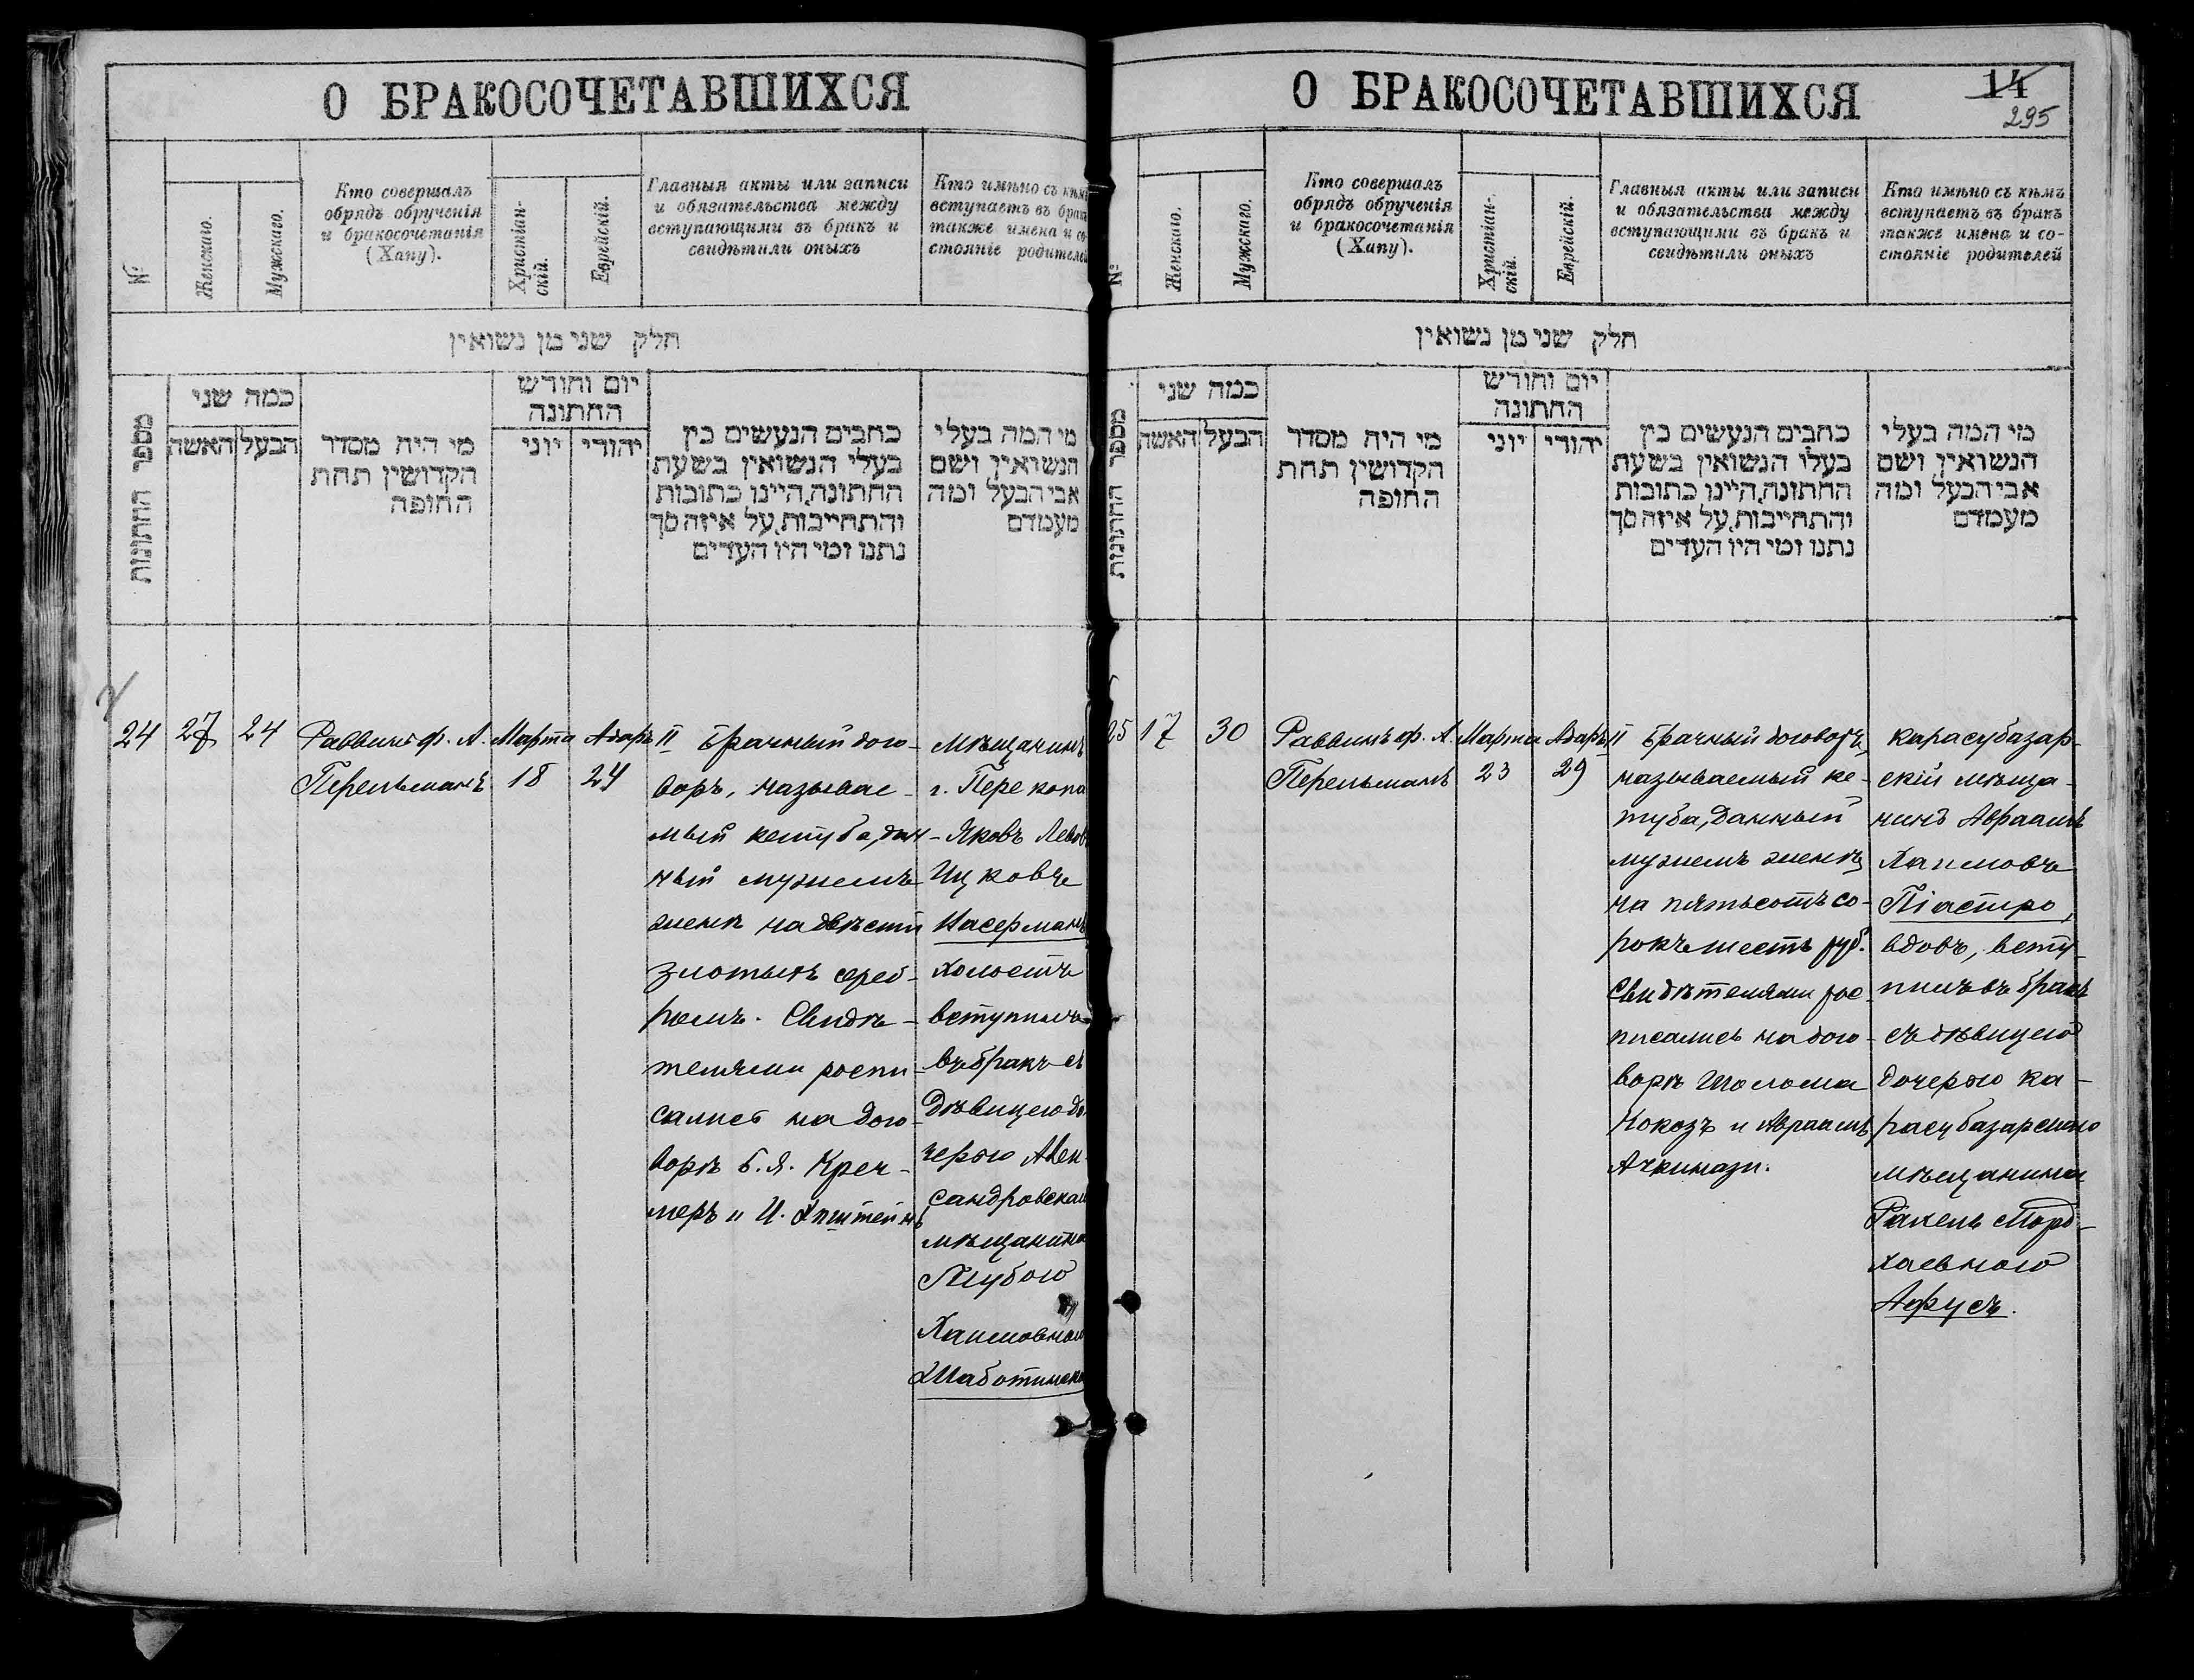 О БРАКОСОЧЕТАВШИХСЯ
№
Женскаго.
Мужскаго.
Кто совершалъ
обрядъ обрученія
и бракосочетанія
(Хапу).
Христіан-
скій.
Еврейскій.
Главныя акты или записи
и обязательства между
вступающими въ бракъ и
свидѣтили оныхъ
Кто имѣно съ кѣмъ
вступаетъ въ бракъ
также имена и со-
стояніе родителей
חלק שני מן נשואין
מספר החתונות
כמה שני
האשה
הבעל
מי היה מסדר
הקדושין תחת
החופה
יום וחודש
החתונה
יוני
יהודי
כתבים הנעשים בין
בעלי הנשואין בשעת
החתונה, היינו כתובות
והתחייבות, על איזה סך
נתנו ומי היו העדים
מי המה בעלי
הנשואין ושם
אבי הבעל ומה
מעמדם
24
27
24
Раввинъ ф. А.
Перельманъ
Марта
18
Адаръ II
24
Брачный дого-
воръ, называе-
мый кетуба, дан-
ный мужемъ
женѣ на двѣсти
злотыхъ сереб-
ромъ. Свидѣ-
телями распи-
сались на дого-
ворѣ Б. Я. Креч-
меръ и И. Эпштейнъ
Мѣщанинъ
г. Перекопа
Яковъ Лейбъ
Ицковъ
Насерманъ
холостъ
вступилъ
въ бракъ съ
дѣвицею до-
черью Алек-
сандровскаго
мѣщанина
Хаимовною
О БРАКОСОЧЕТАВШИХСЯ
14
295
№
Женскаго.
Мужскаго.
Кто совершалъ
обрядъ обрученія
и бракосочетанія
(Хапу).
Христіан-
скій.
Еврейскій.
Главныя акты или записи
и обязательства между
вступающими въ бракъ и
свидѣтили оныхъ
Кто имѣно съ кѣмъ
вступаетъ въ бракъ
также имена и со-
стояніе родителей
חלק שני מן נשואין
מספר החתונות
כמה שני
האשה
הבעל
מי היה מסדר
הקדושין תחת
החופה
יום וחודש
החתונה
יוני
יהודי
כתבים הנעשים בין
בעלי הנשואין בשעת
החתונה, היינו כתובות
והתחייבות, על איזה סך
נתנו ומי היו העדים
מי המה בעלי
הנשואין ושם
אבי הבעל ומה
מעמדם
25
17
30
Раввинъ ф. А.
Перельманъ
Марта
23
Адаръ II
29
Брачный договоръ,
называемый ке-
туба, данный
мужемъ женѣ
на пятьсотъ со-
рокъ шесть руб.
Свидѣтелями рос-
писались на дого-
ворѣ Шолома
Кокозъ и Авраамъ
Ачкинази.
Карасубазар-
скій мѣща-
нинъ Авраамъ
Хаимовъ
Піастро,
вдовъ, всту-
пилъ въ бракъ
съ дѣвицею
дочерью ка-
расубазарскаго
мѣщанина
Рахель Морд-
хаевною
Афусъ.